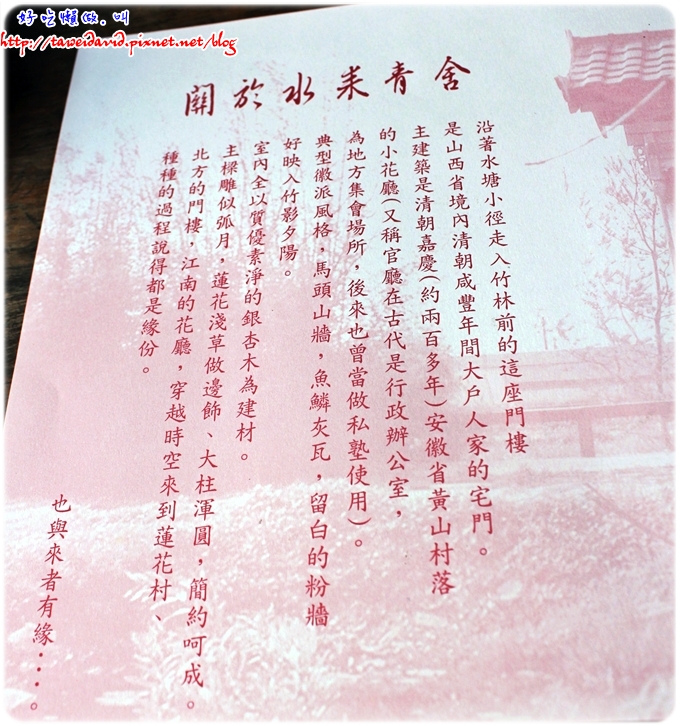 好吃懶做.叫
http://taweidavid.pixnet.net/blog
關於水來青舍
沿著水塘小徑走入竹林前的這座門樓
是山西省境內清朝咸豐年間大戶人家的宅門。
主建築是清朝嘉慶(約兩百多年)安徽省黃山村落
的小花廳(又稱官廳在古代是行政辦公室，
為地方集會場所，後來也曾當做私塾使用)。
典型徽派風格，馬頭山牆，魚鱗灰瓦，留白的粉牆
好映入竹影夕陽。
室內全以質優素淨的銀杏木為建材。
主樑雕似弧月，蓮花淺草做邊飾、大柱渾圓，簡約呵成。
北方的門樓，江南的花廳，穿越時空來到蓮花村、
種種的過程說得都是緣份。
也與來者有緣‧‧‧‧。